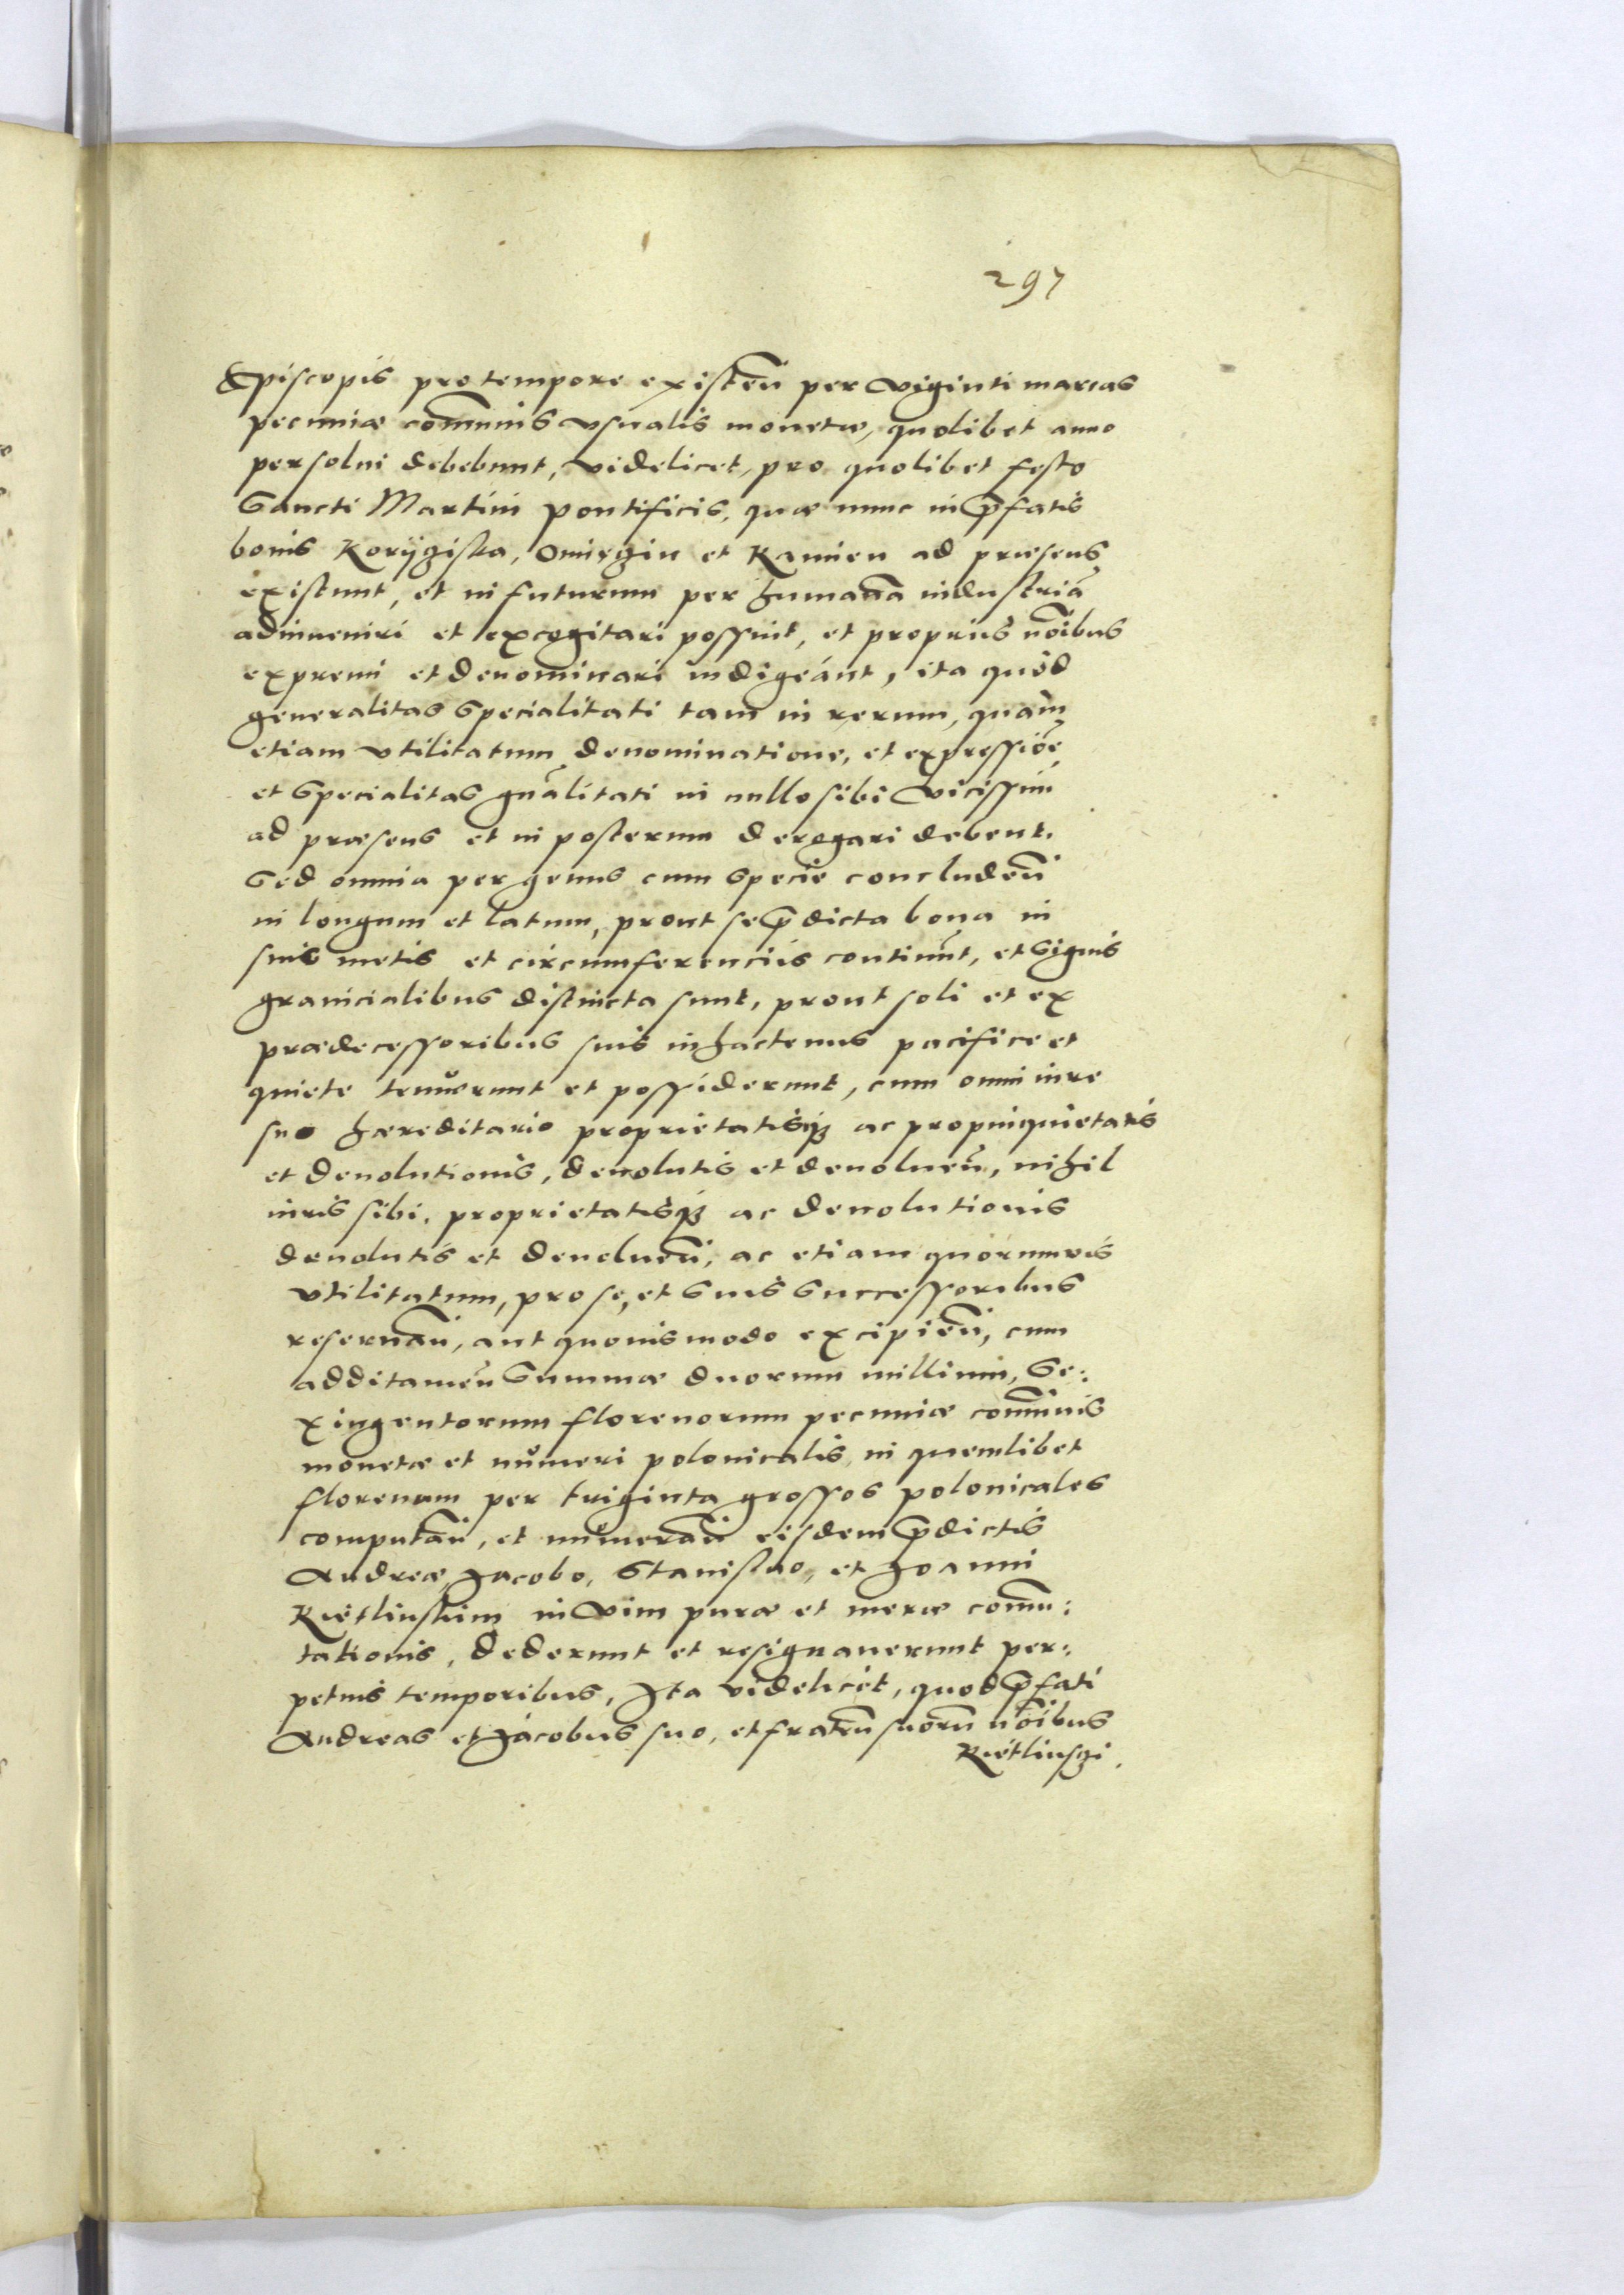 297
Episcopis pro tempore existen̄ per viginti marcas
pecuniæ com̄unis vsualis monetæ, quolibet anno
persolui debebunt, videlicet, pro quolibet festo
Sancti Martini pontificis, quæ nunc in p̄fatis
bonis Koryziska, Omięzin et Kamien ad præsens
existunt, et in futurum per humanā industriā
adinueniri et excogitari possint, et proprius no̅ibus
expremi et denominari indigeant, ita quòd
generalitas specialitati tam in rerum, quàm
etiam vtilitatum denominatione, et expressiōe,
et specialitas gn̄alitati in nullo sibi vicissim
ad præsens et in posterum derogari debent.
Sed omnia per genus cum specie concluden̄
in longum et latum, prout sep̄dicta bona in
suis metis et circumferenciis continēt, et signis
granicialibus distincta sunt, prout soli et ex
prædecessoribus suis inhactenus pacifice et
quiete tenuerunt et possiderunt, cum omni iure
suo hæreditario proprietatisqꝫ ac propinquietatis
et deuolutionis, deuolutis et deuoluen̄, nihil
iuris sibi, proprietatisqꝫ ac deuolutionis
deuolutis et deuoluen̄, ac etiam quorumvis
vtilitatum, pro se, et suis successoribus
reseruan̄, aut quouismodo excipien̄, cum
additamen̄ summæ duorum millium, se:
xingentorum florenorum pecuniæ com̄unis
monetæ et numeri polonicalis, in quemlibet
florenum per triginta grossos polonicales
computan̄, et numeran̄ eisdem p̄dictis
Andreæ, Jacobo, Stanislao, et Joanni
Kietlinskim in vim puræ et meræ com̄u:
tationis, dederunt et resignauerunt per:
petuis temporibus, Ita videlicet, quod p̄fati
Andreas et Jacobus suo, et fratrū suorū no̅ibus
Kietlinsczi.